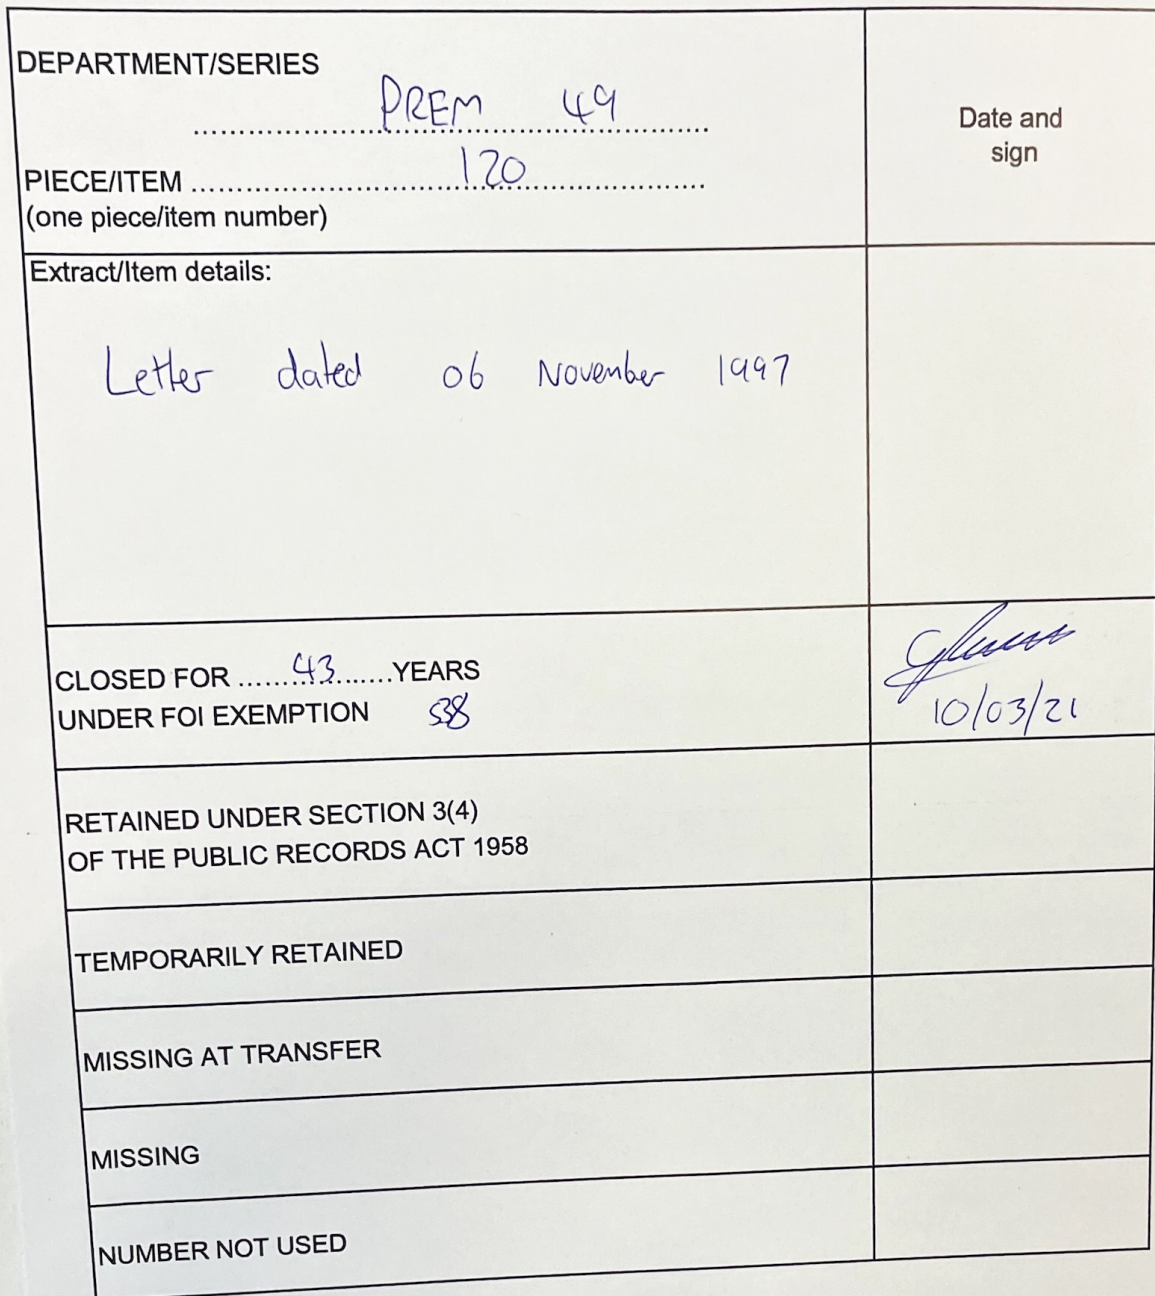 DEPARTMENT/SERIES
PREM 49
Date and
sign
PIECE/ITEM 120
(one piece/item number)
Extract/Item details:
Letter dated 06 November 1997
CLOSED FOR ..........43..........YEARS
UNDER FOI EXEMPTION S38
10/03/21
RETAINED UNDER SECTION 3(4)
OF THE PUBLIC RECORDS ACT 1958
TEMPORARILY RETAINED
MISSING AT TRANSFER
MISSING
NUMBER NOT USED